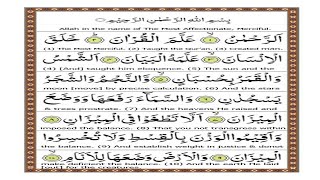 بِسْمِ اللهِ الرَّحْمٰنِ الرَّحِيْمِ
Allah in the name of The Most Affectionate, Merciful.
اَلرَّحْمٰنُ ۙ عَلَّمَ الْقُرْاٰنَ ؕ خَلَقَ
(1) The Most Merciful. (2) Taught the Qur'an. (3) created man.
الْاِنْسَانَ ۙ عَلَّمَهُ الْبَيَانَ اَلشَّمْسُ
(4) (And) taught him eloquence. (5) The sun and the
وَالْقَمَرُ بِحُسْبَانٍ وَّالنَّجْمُ وَالشَّجَرُ
moon (move) by precise calculation. (6) And the stars
يَسْجُدٰنِ وَالسَّمَآءَ رَفَعَهَا وَوَضَعَ
& trees prostrate. (7) And the heavens He raised and
الْمِيْزَانَ ۙ اَلَّا تَطْغَوْا فِى الْمِيْزَانِ
imposed the balance. (8) That you not transgress within
وَاَقِيْمُوا الْوَزْنَ بِالْقِسْطِ وَلَا تُخْسِرُوا
the balance. (9) And establish weight in justice & donot
الْمِيْزَانَ وَالْاَرْضَ وَضَعَهَا لِلْاَنَامِ
make deficient the balance. (10) And the earth He laid
[out] for the creatures.